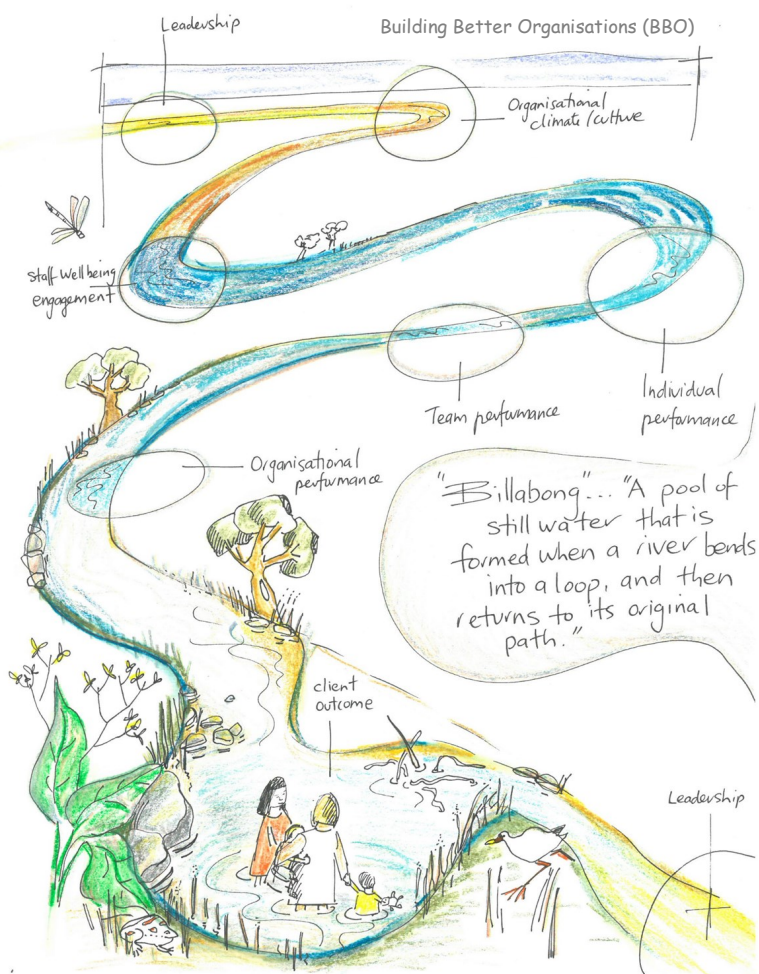 Leadership
Building Better Organisations (BBO)
Organisational
climate/culture
Staff Wellbeing
engagement
Individual
performance
Team performance
Organisational
performance
"Billabong"... "A pool of
still water that is
formed when a river bends
into a loop, and then
returns to its original
path."
client
outcome
Leadership